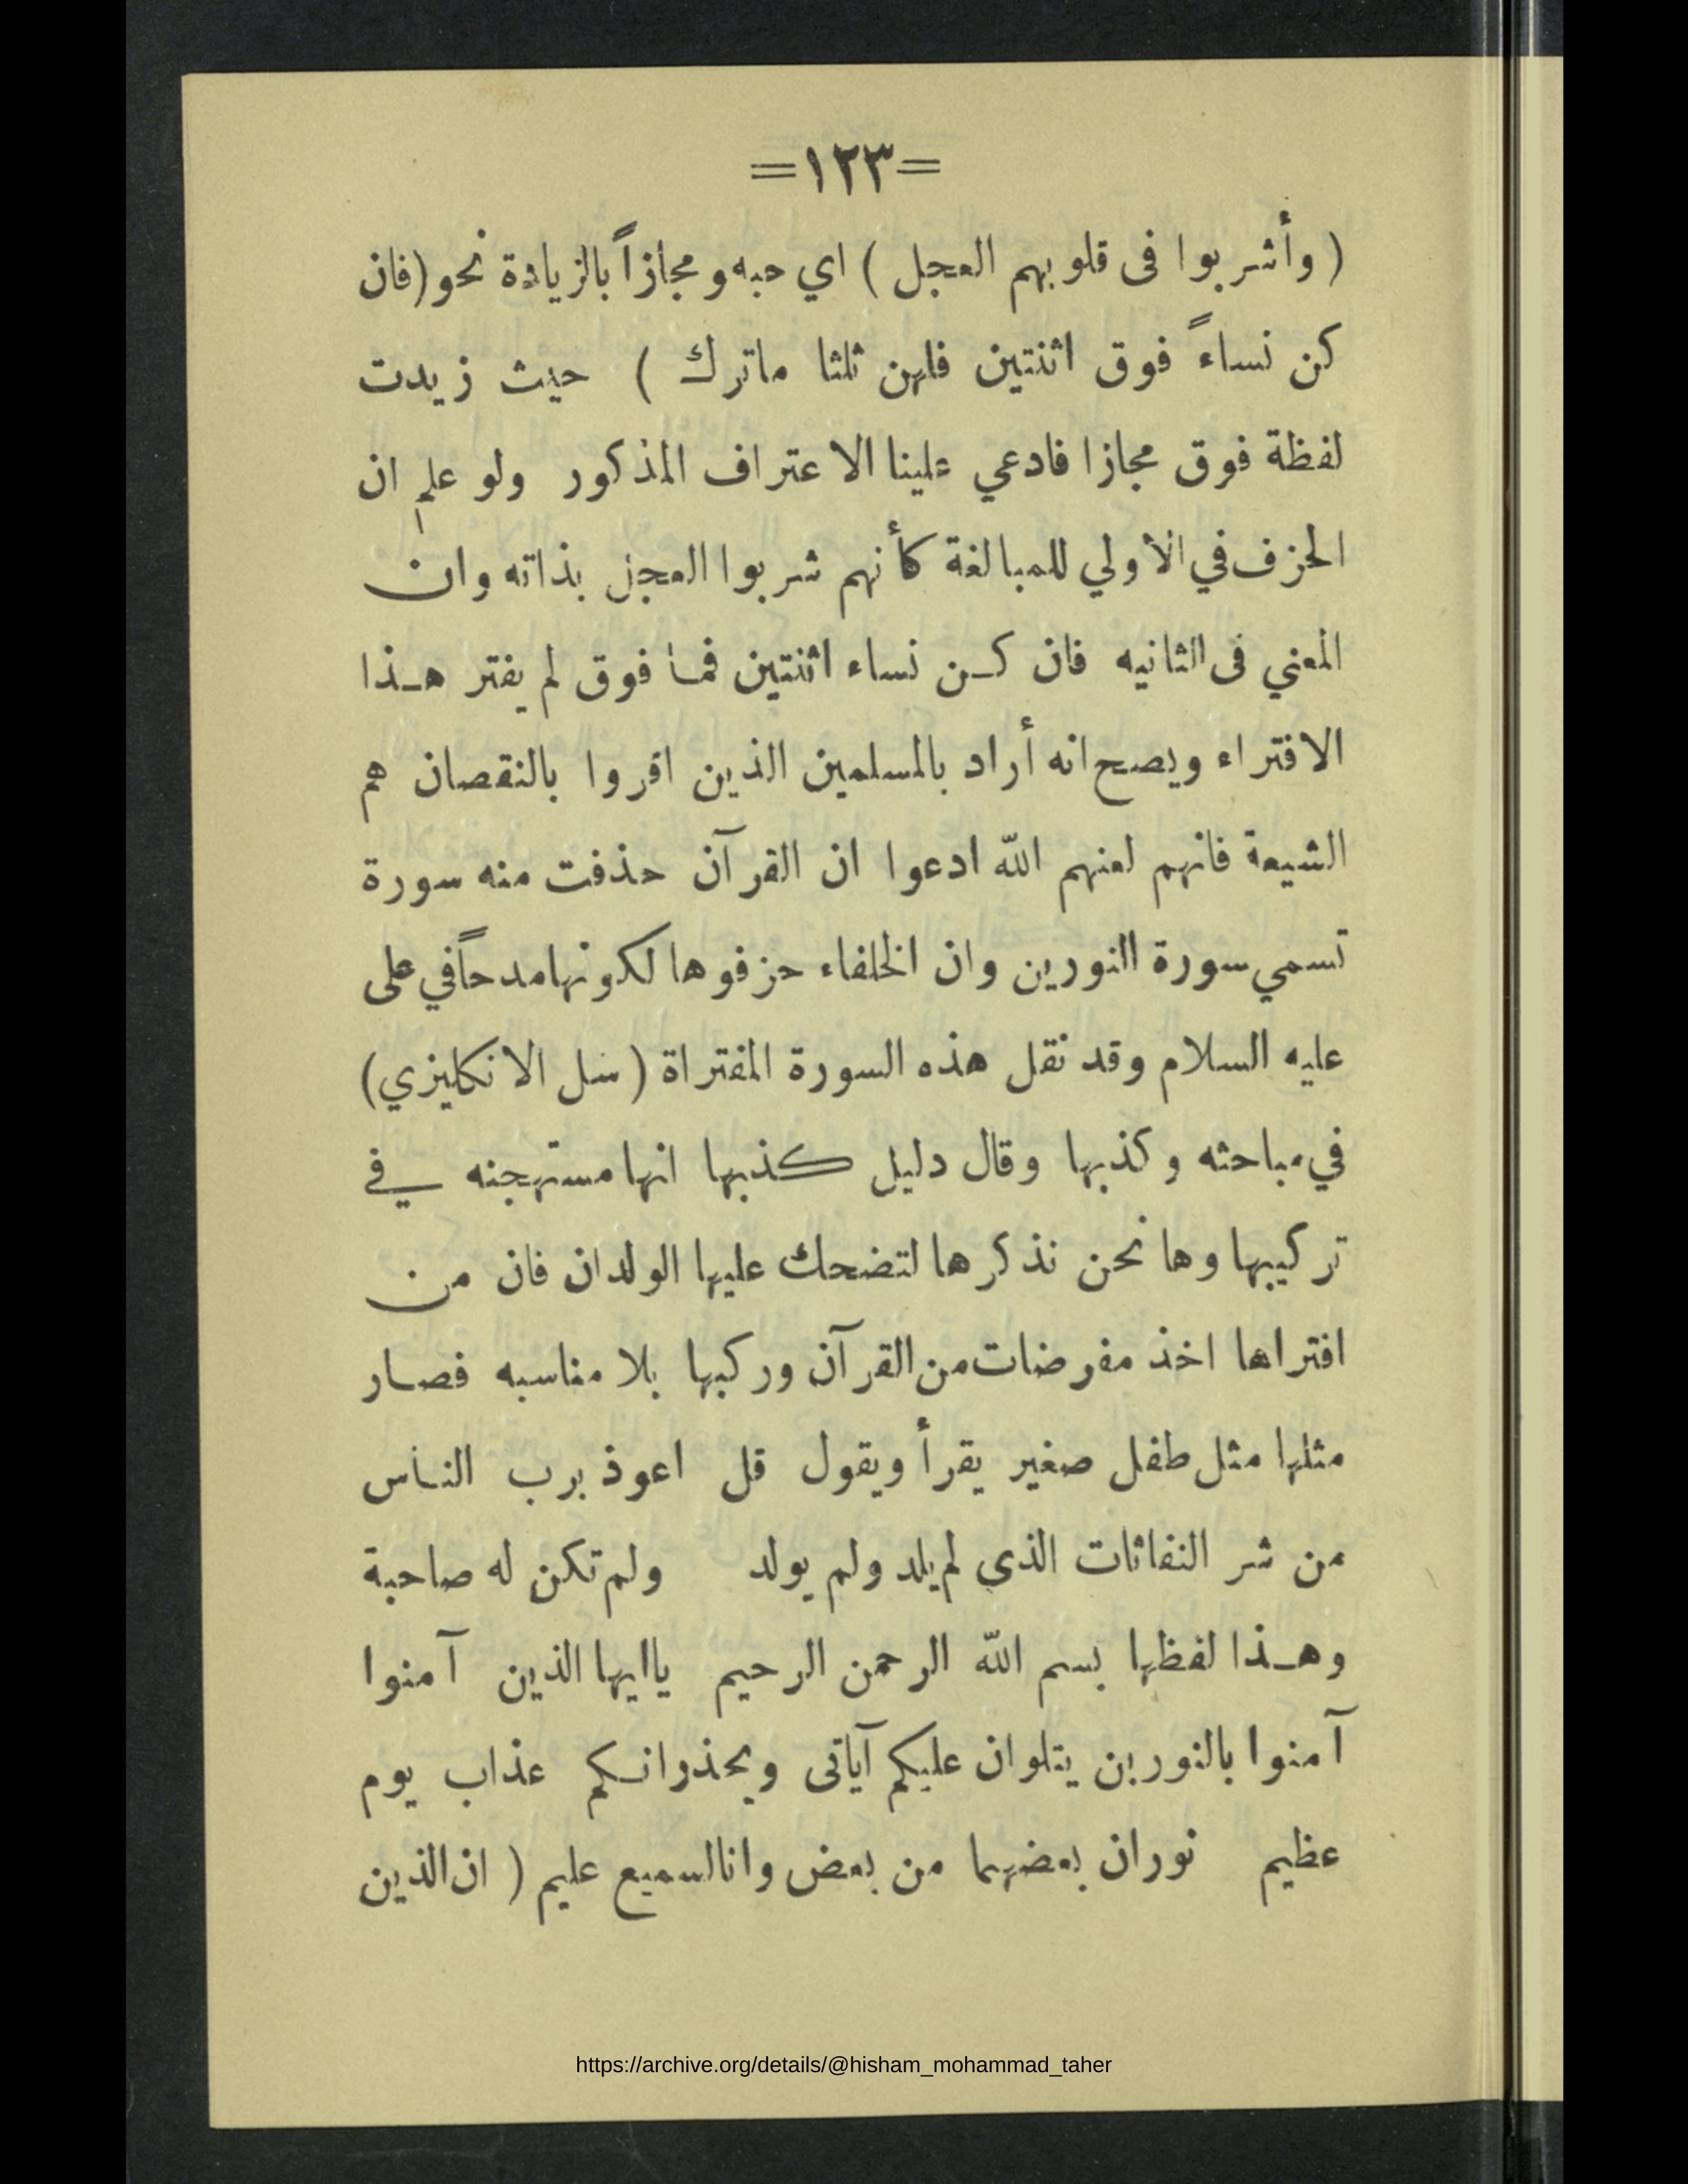 =١٢٣=
( وأشربوا فى قلوبهم العجل ) اي حبه ومجازاً بالزيادة نحو (فان
كن نساءً فوق اثنتين فلهن ثلثا ماترك ) حيث زيدت
لفظة فوق مجازا فادعي علينا الاعتراف المذكور ولو علم ان
الحزف في الأولي للمبالغة كأنهم شربوا العجل بذاته وان
المعني فى الثانيه فان كـن نساء اثنتين فما فوق لم يفتر هـذا
الافتراء ويصح انه أراد بالمسلمين الذين اقروا بالنقصان هم
الشيعة فانهم لعنهم الله ادعوا ان القرآن حذفت منه سورة
تسمي سورة النورين وان الخلفاء حزفوها لكونها مدحاً في على
عليه السلام وقد نقل هذه السورة المفتراة ( سل الانكليزي)
في مباحثه وكذبها وقال دليل كذبها انها مستهجنه في
تركيبها وها نحن نذكرها لتضحك عليها الولدان فان من
افتراها اخذ مفرضات من القرآن وركبها بلا مناسبه فصار
مثلها مثل طفل صغير يقرأ ويقول قل اعوذ برب الناس
من شر النفاثات الذى لم يلد ولم يولد ولم تكن له صاحبة
وهـذا لفظها بسم الله الرحمن الرحيم ياايها الذين آمنوا
آمنوا بالنورين يتلوان عليكم آياتى ويحذرانكم عذاب يوم
عظيم نوران بعضهما من بعض وانا السميع عليم ( ان الذين
https://archive.org/details/@hisham_mohammad_taher